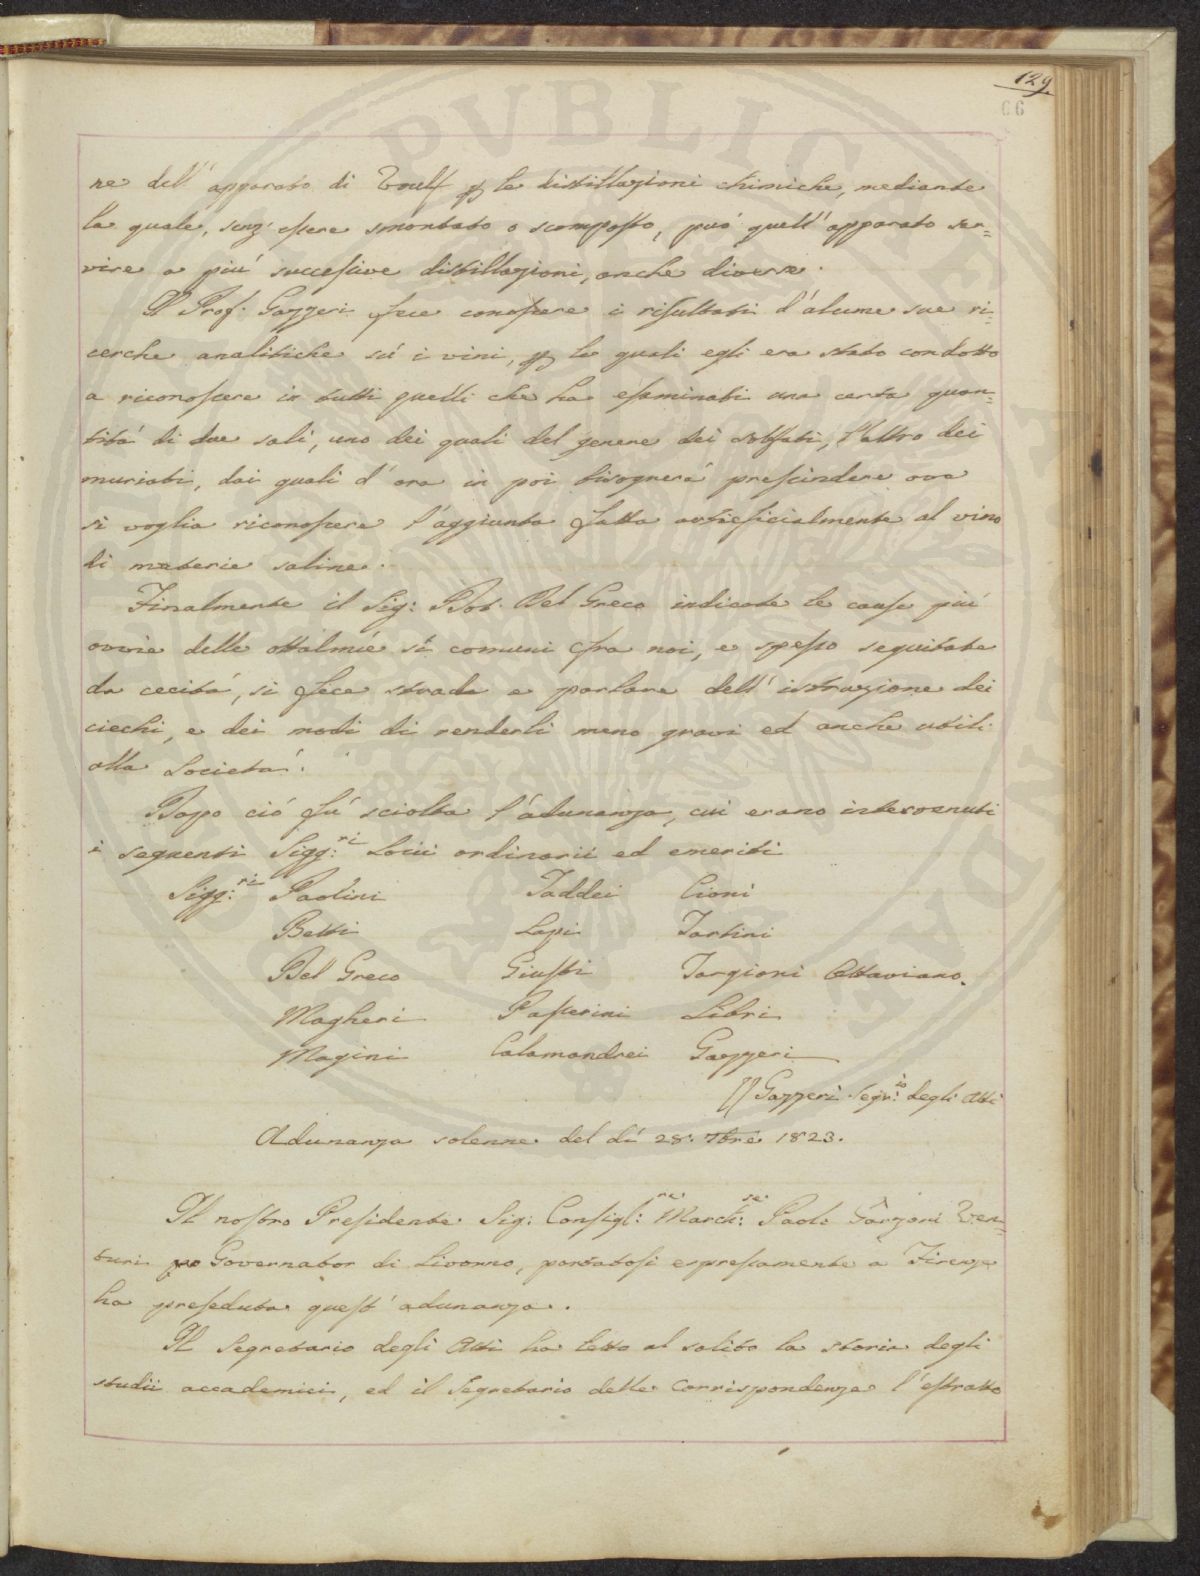 129
66
PVBLICAE VTILITATI
ne dell'apparato di Woulf p le distillazioni chimiche, mediante
la quale, senz'essere smontato o scomposto, può quell'apparato ser=
vire a piú successive distillazioni, anche diverse.
Il Prof. Gazzeri fece conoscere i risultati d'alcune sue ri=
cerche analitiche sú i vini, p le quali egli era stato condotto
a riconoscere in tutti quelli che ha esaminati una certa quan=
titá di due sali, uno dei quali del genere dei solfati, l'altro dei
muriati, dai quali d'ora in poi bisognerá prescindere ove
si voglia riconoscere l'aggiunta fatta artificialmente al vino
di materie saline.
Finalmente il Sig: Dot. Del Greco indicate le cause piú
ovvie delle ottalmíe sí comuni fra noi, e spesso seguitate
da cecitá, si fece strada a parlare dell'istruzione dei
ciechi, e dei modi di renderli meno gravi ed anche utili
alla Societá.
Dopo ció fú sciolta l'adunanza, cui erano intervenuti
i seguenti Sigg:ri Socii ordinarii ed emeriti
Sigg:ri Paolini Taddei Cioni
Betti Lapi Tartini
Del Greco Giusti Targioni Ottaviano.
Magheri Passerini Libri
Magini Calamandrei Gazzeri
Gazzeri Segr:io degli Atti
Adunanza solenne del dí 28. 7bre 1823.
Il nostro Presidente Sig: Consigl:re March:se Paolo Garzoni Ven=
turi Governator di Livorno, portatosi espressamente a Firenze
ha preseduta quest'adunanza.
Il Segretario degli Atti ha letto al solito la storia degli
studii accademici, ed il Segretario delle Corrispondenze l'estratto